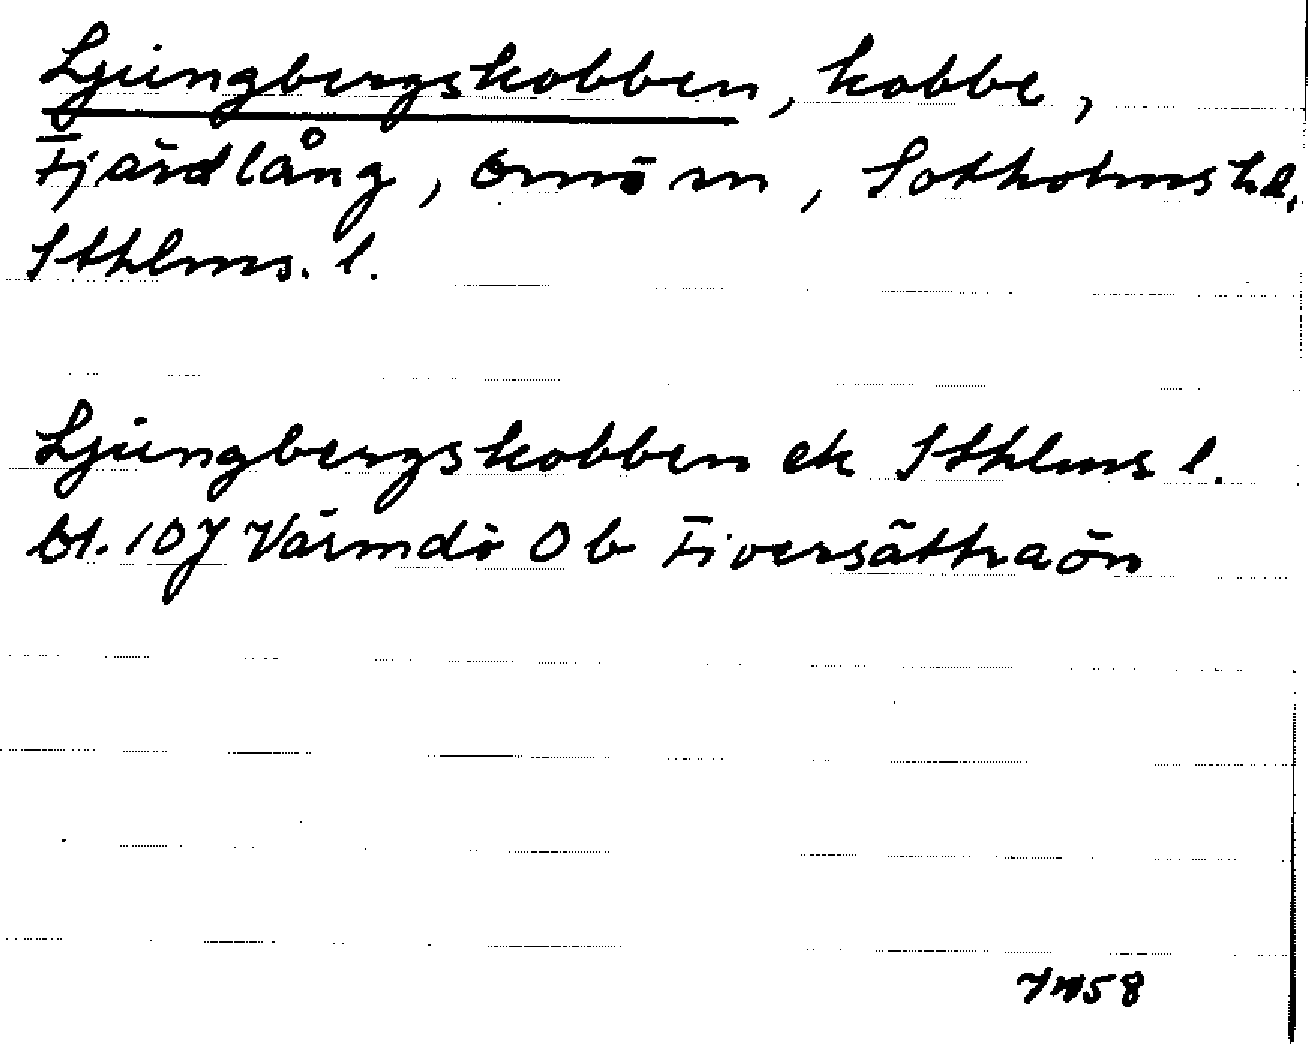 Ljungbergskobben, kobbe,
Fjärdlång, Ornö sn, Sotholms hd,
Sthlms. l.
Ljungbergskobben ek Sthlms l.
bl. 107 Värmdö Ob Fiversätraön